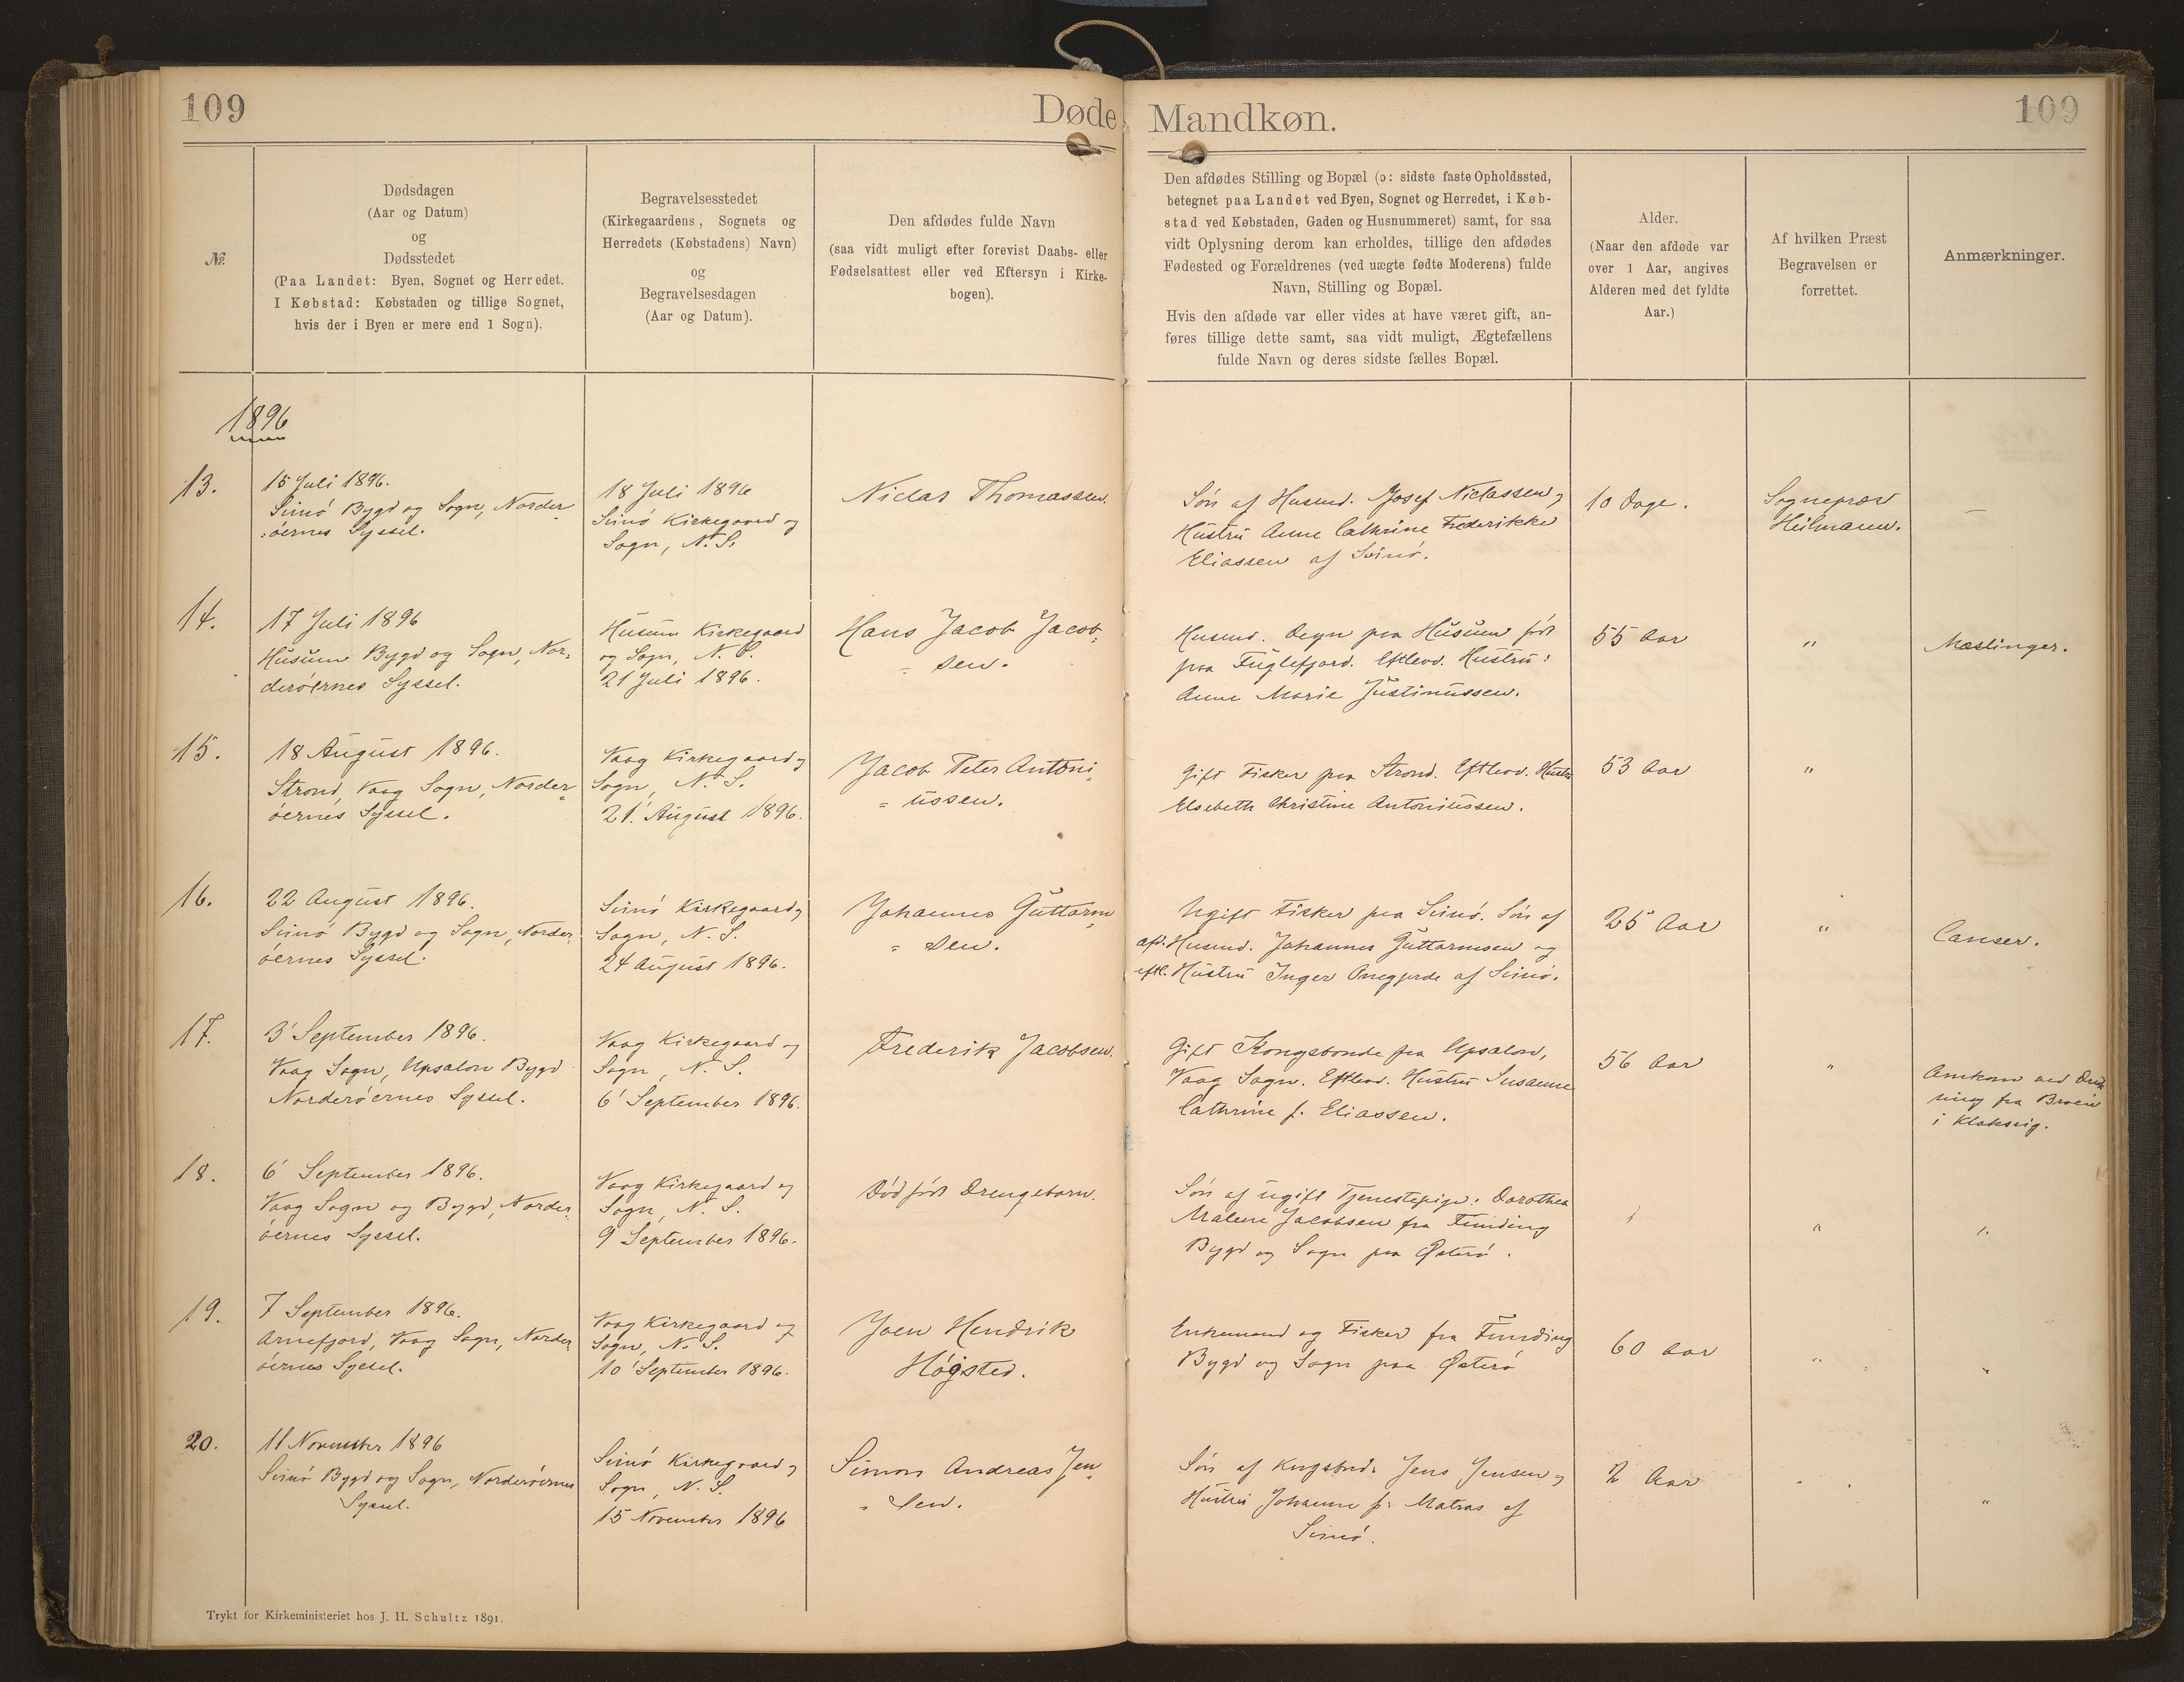 109
Døde
Mandkøn.
109
№.
Dødsdagen
(Aar og Datum)
og
Dødsstedet
(Paa Landet: Byen, Sognet og Herredet.
I Købstad: Købstaden og tillige Sognet,
hvis der i Byen er mere end 1 Sogn).
Begravelsesstedet
(Kirkegaardens, Sognets og
Herredets (Købstadens) Navn)
og
Begravelsesdagen
(Aar og Datum).
Den afdødes fulde Navn
(saa vidt muligt efter forevist Daabs- eller
Fødselsattest eller ved Eftersyn i Kirke-
bogen).
Den afdødes Stilling og Bopæl (ɔ: sidste faste Opholdssted,
betegnet paa Landet ved Byen, Sognet og Herredet, i Køb-
stad ved Købstaden, Gaden og Husnummeret) samt, for saa
vidt Oplysning derom kan erholdes, tillige den afdødes
Fødested og Forældrenes (ved uægte fødte Moderens) fulde
Navn, Stilling og Bopæl.
Hvis den afdøde var eller vides at have været gift, an-
føres tillige dette samt, saa vidt muligt, Ægtefællens
fulde Navn og deres sidste fælles Bopæl.
Alder.
(Naar den afdøde var
over 1 Aar, angives
Alderen med det fyldte
Aar.)
Af hvilken Præst
Begravelsen er
forrettet.
Anmærkninger.
1896
13.
15 Juli 1896.
Svinö Bygd og Sogn, Norder
öernes Syssel.
18 Juli 1896
Svinö Kirkegaard og
Sogn, N. S.
Niclas Thomassen.
Sön af Husmd. Josef Niclassen og
Hustru Anne Cathrine Frederikke
Eliassen af Svinö.
10 Dage.
Sognepræst
Heilmann.
—
14.
17 Juli 1896
Husum Bygd og Sogn, Nor-
deröernes Syssel.
Husum Kirkegaard
og Sogn, N. S.
21 Juli 1896.
Hans Jacob Jacob-
sen.
Husmd. Degn paa Husum født
paa Fuglefjord. Efterl. Hustru:
Anne Marie Justinussen.
55 Aar
"
Mæslinger.
15.
18 August 1896.
Strond, Vaag Sogn, Norder
öernes Syssel.
Vaag Kirkegaard og
Sogn, N. S.
21 August 1896.
Jacob Peter Antoni-
ussen.
Gift Fisker paa Strond. Efterl. Hustru
Elsebeth Christine Antoniussen.
53 Aar
"
16.
22 August 1896.
Svinö Bygd og Sogn, Norder
öernes Syssel.
Svinö Kirkegaard og
Sogn, N. S.
24 August 1896.
Johannes Guttorm
sen.
Ugift Fisker paa Svinö. Sön af
afd. Husmd. Johannes Guttormsen og
eftl. Hustru Inger Onegjerde af Svinö.
25 Aar
"
Canser.
17.
3' September 1896.
Vaag Sogn, Upsalon Bygd
Norderöernes Syssel.
Vaag Kirkegaard og
Sogn, N. S.
6' September 1896.
Frederik Jacobsen.
Gift Kongsbonde fra Upsalon,
Vaag Sogn. Efterl. Hustru Susanne
Cathrine f. Eliassen.
56 Aar
"
Omkom ved Druk
ning fra Broen
i Klaksvig.
18.
6' September 1896.
Vaag Sogn og Bygd, Norder
öernes Syssel.
Vaag Kirkegaard og
Sogn, N. S.
9 September 1896.
Död født Drengebarn.
Sön af ugift Tjenestepige: Dorothea
Malene Jacobsen fra Funding
Bygd og Sogn paa Österö.
"
"
19.
7 September 1896.
Arnefjord, Vaag Sogn, Norder
öernes Syssel.
Vaag Kirkegaard og
Sogn, N. S.
10' September 1896.
Joen Hendrik
Högsted.
Enkemand og Fisker fra Funding
Bygd og Sogn paa Österö
60 Aar
"
"
20.
11 November 1896
Svinö Bygd og Sogn, Norderöernes
Syssel.
Svinö Kirkegaard og
Sogn, N. S.
15 November 1896
Simon Andreas Jen
sen.
Sön af Kngsbnd. Jens Jensen og
Hustru Johanne f. Matras af
Svinö.
2 Aar
"
"
Trykt for Kirkeministeriet hos J. H. Schultz 1891.